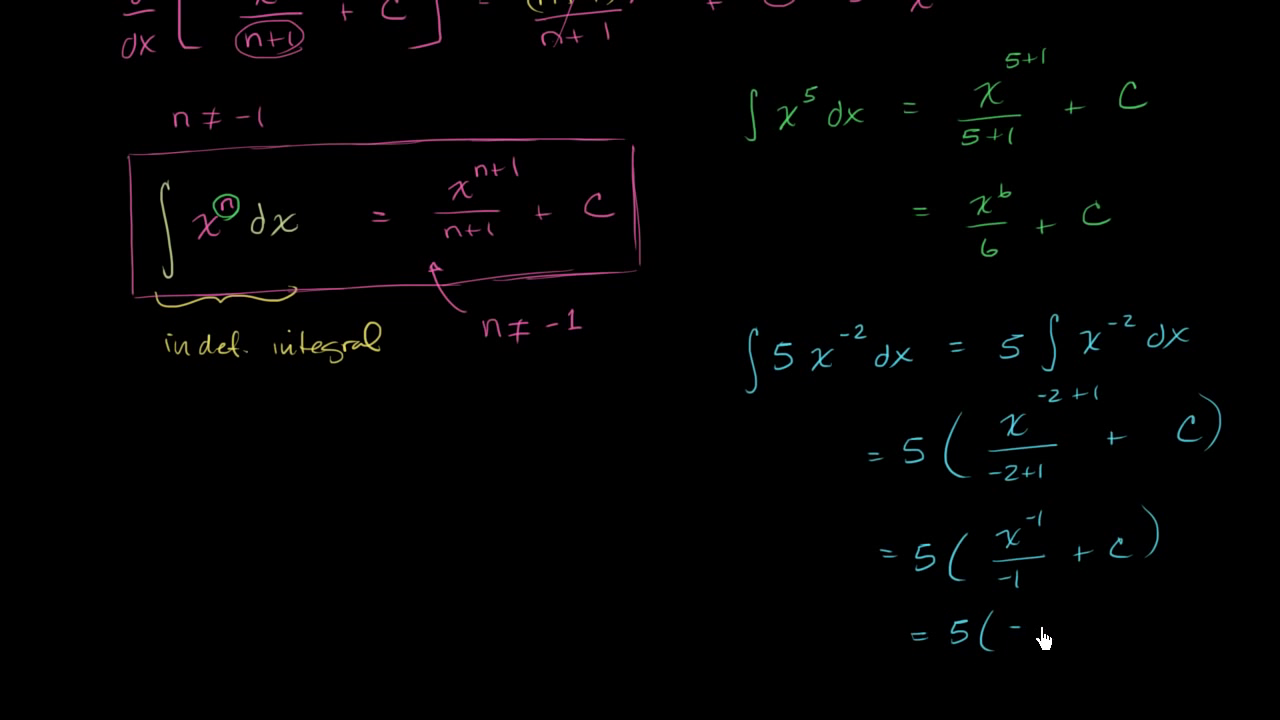 d/dx [ x/(n+1) + C ] = (n+1)/(n+1) + x
n ≠ -1
∫ xⁿ dx = xⁿ⁺¹/(n+1) + C
n ≠ -1
indef. integral
∫ x⁵ dx = x⁵⁺¹/(5+1) + C
= x⁶/6 + C
∫ 5 x⁻² dx = 5 ∫ x⁻² dx
= 5 ( x⁻²⁺¹/(-2+1) + C )
= 5 ( x⁻¹/-1 + C )
= 5 ( -